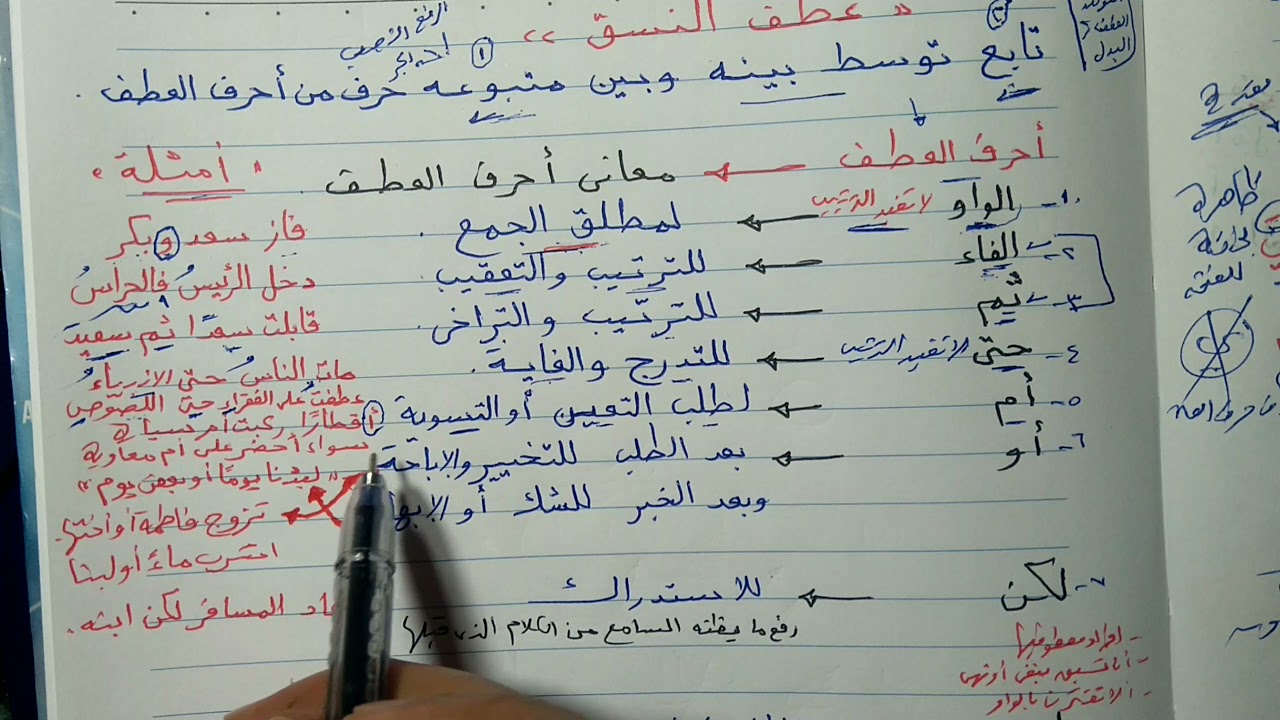 « عطف النسق »
تابع توسط بينه وبين متبوعه حرف من أحرف العطف .
أحرف العطف ← معانى أحرف العطف . « أمثلة »
١- الواو لا تفيد الترتيب ← لمطلق الجمع . فاز سعد وبكر
٢- الفاء ← للترتيب والتعقيب . دخل الرئيسُ فالحراسُ
٣- ثم ← للترتيب والتراخى . قابلت سعدًا ثم سعيدَ
٤- حتى لا تفيد الترتيب ← للتدرج والغاية . مات الناسُ حتى الأنبياءُ
عطفتُ على الفقراء حتى اللصوصِ
٥- أم ← لطلب التعيين أو التسوية أقطارًا ركبت أم
سواء أحضر على أم معاوية
٦- أو ← بعد الطلب للتخيير والإباحة « لبثنا يومًا أو بعض يوم »
وبعد الخبر للشك أو تزوج فاطمة أو أختها .
اشرب ماءً أو لبنا
٧- لكن ← للاستدراك المسافر لكن ابنه .
رفع ما يظنه السامع من الكلام الذى قبلها
- إفراد معطوفها
- ألا تسبق بنفى أو نهى
- ألا تقترن بالواو
العطف
البدل
ظاهرة